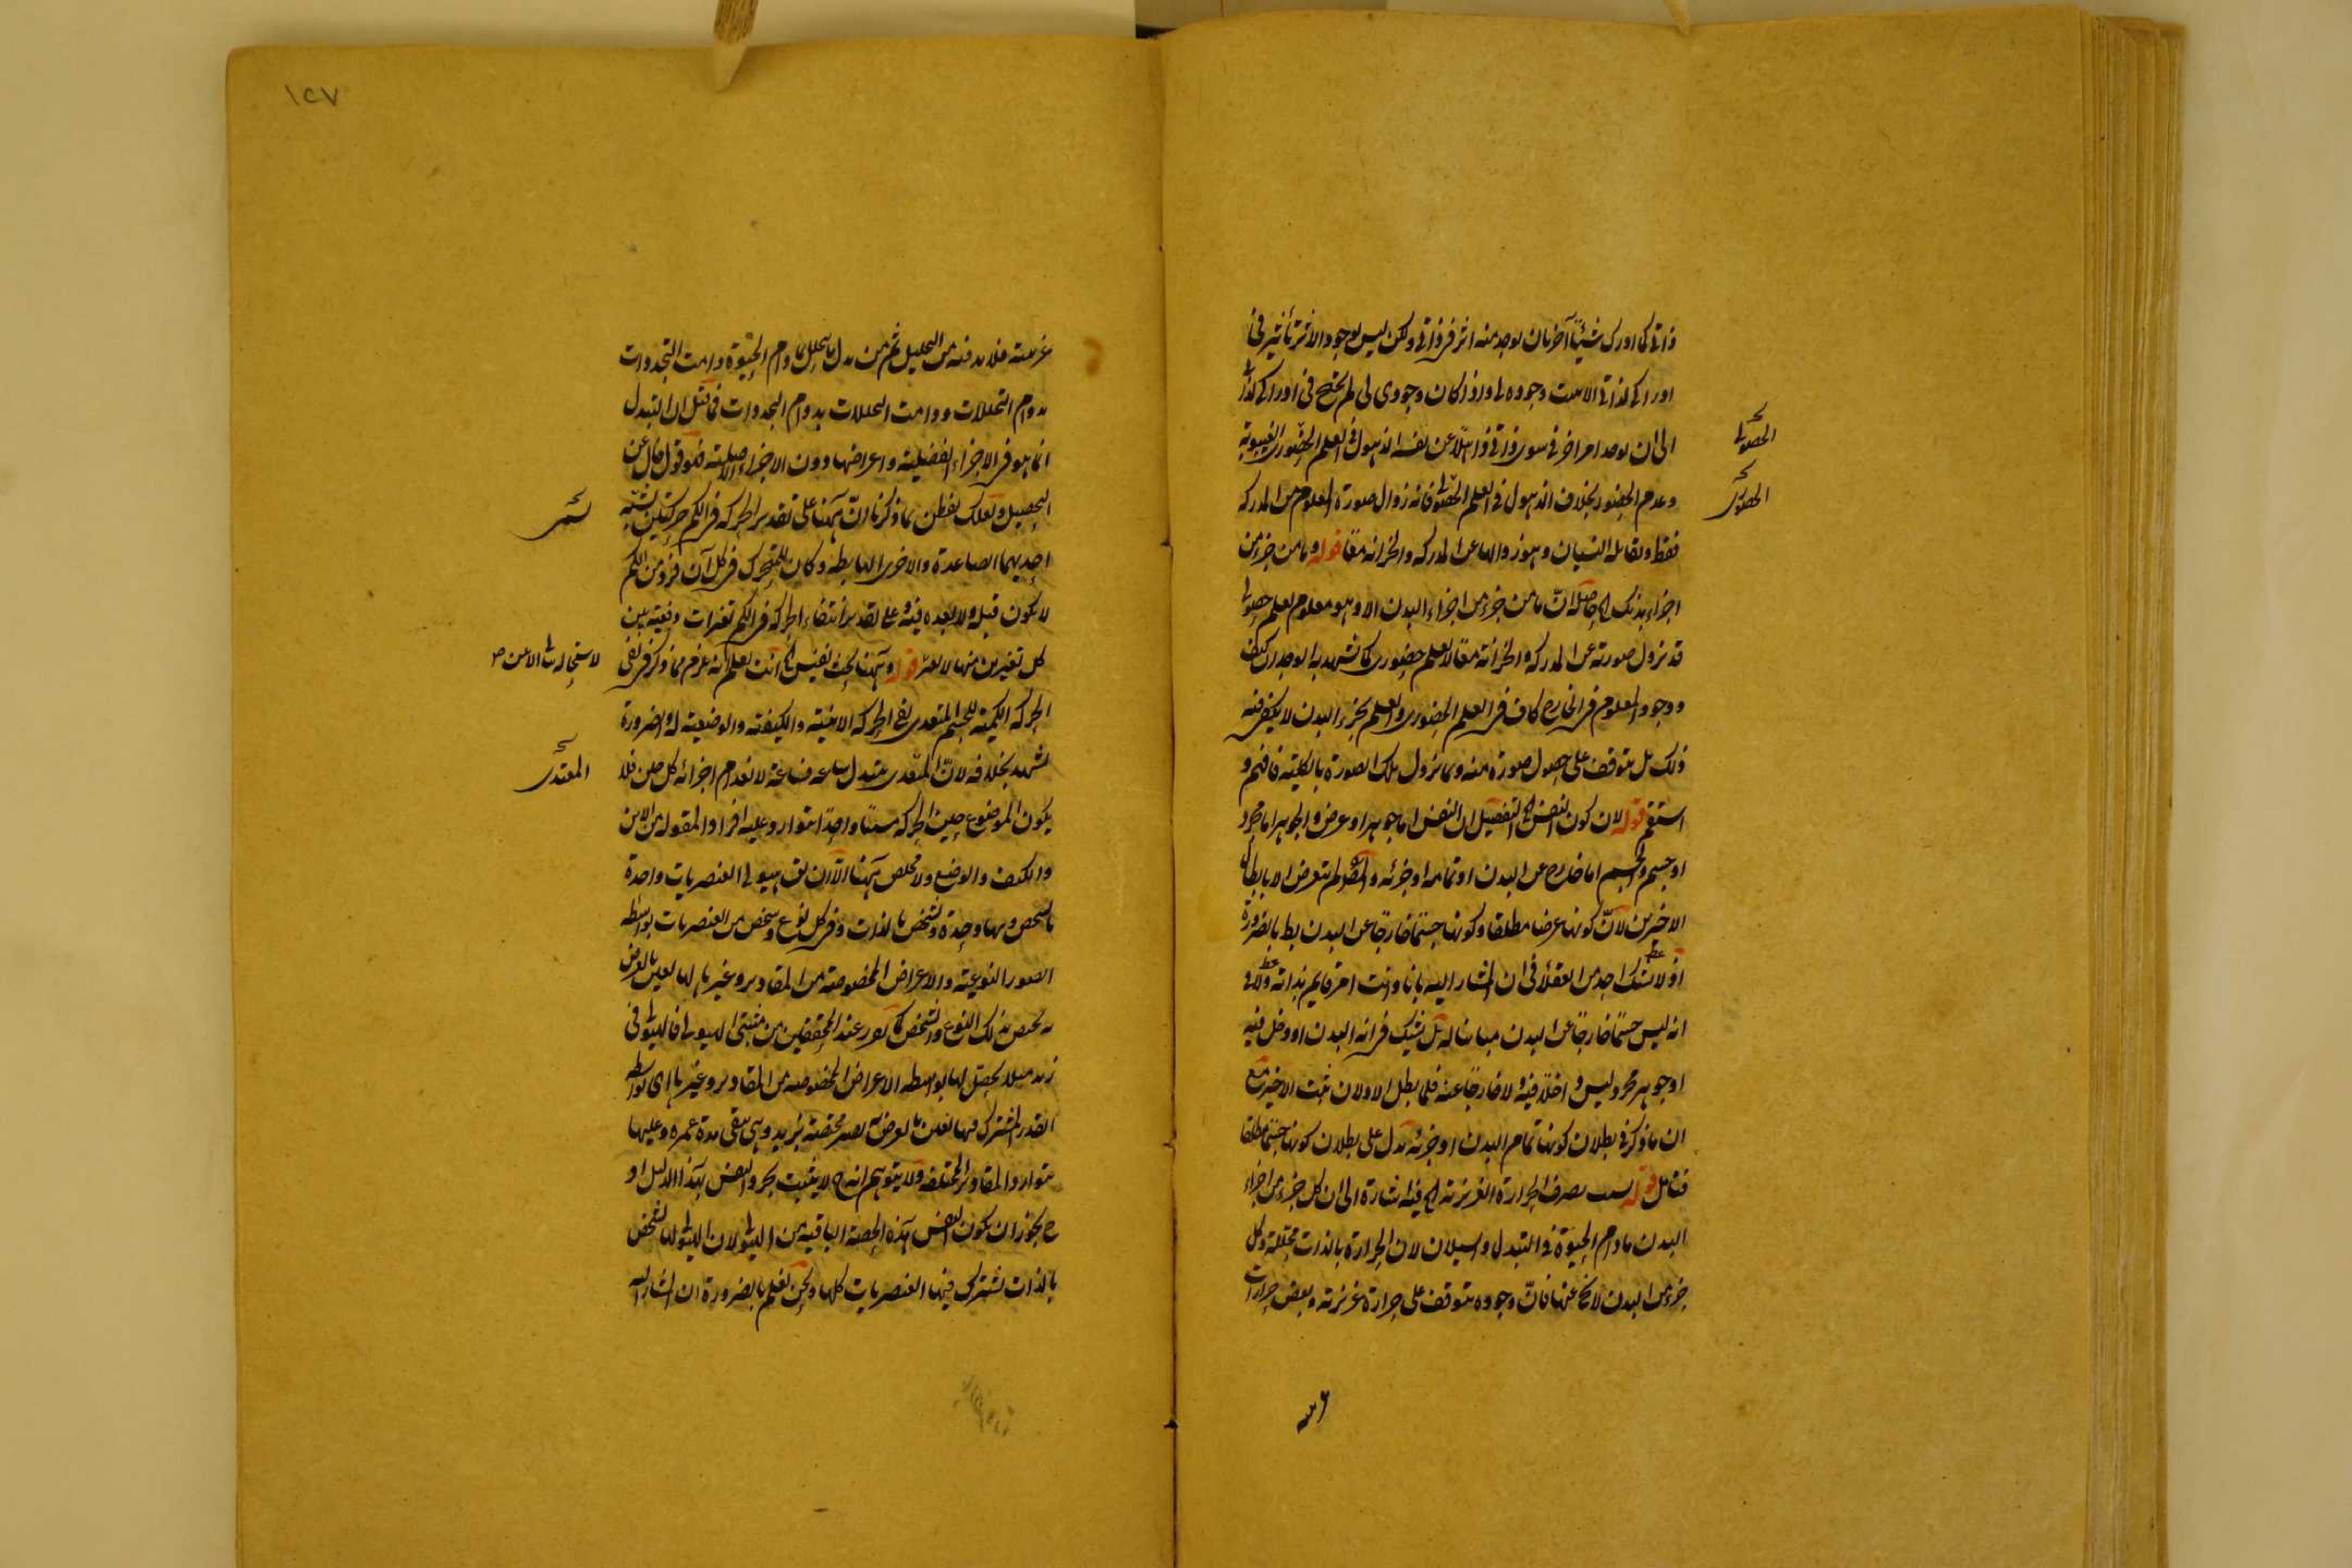 ذاتي كما ادرك شيئا آخر بان يوجد منه اثر في ذاتي ولكن ليس لوجود الاثر تأثير في
ادراكي لذاتي الا من وجوده لي واذا كان وجودي لي لم يحتج في ادراكي لذاتي
الى ان يوجد امر آخر في سوى ذاتي ذاهلا عن نفسه الذهول في العلم الحضوري الغيبوبة
وعدم الحضور بخلاف الذهول في العلم الحصولي فانه زوال صورة المعلوم من المدركة
فقط ويقابله النسيان وهو زوالها عن المدركة والخزانة معا قوله وما من جزء من
اجزاء بدنك الخ حاصله ان ما من جزء من اجزاء البدن الا وهو معلوم بعلم حصولي
قد يزول صورته عن المدركة والخزانة معا لا بعلم حضوري كما يشهد به الوجدان كيف
ووجود المعلوم في الخارج كاف في العلم الحضوري والعلم بجزء البدن لا يكفي فيه
ذلك بل يتوقف على حصول صورة منه وربما يزول تلك الصورة بالكلية فافهم و
استقم قوله لان كون النفس الخ التفصيل ان النفس اما جوهر او عرض والجوهر اما مجرد
او جسم والجسم اما خارج عن البدن او تمامه او جزئه والمص لم يتعرض الا بابطال
الاخيرين لان كونها عرضا مطلقا وكونها جسما خارجا عن البدن بط بالضرورة
اذ لا يشك احد من العقلاء في ان المشار اليه بانا وانت امر قايم بذاته ولا في
انه ليس جسما خارجا عن البدن مباينا له بل يشك في انه البدن او دخل فيه
او جوهر مجرد ليس داخلا فيه ولا خارجا عنه فلما بطل الاولان ثبت الاخير مع
ان ما ذكر في بطلان كونها تمام البدن او جزئه يدل على بطلان كونها جسما مطلقا
فتأمل قوله بسبب تصرف الحرارة الغريزية الخ فيه اشارة الى ان كل جزء من اجزاء
البدن ما دام الحيوة في التبدل والسيلان لان الحرارة بالذات محللة وكل
جزء من البدن لا يخ عنها فان وجوده يتوقف على حرارة غريزية وبعض حرارات
الحصولي
الحضوري
١٢٧
غريبة فلا بد فيه من التحليل ثم من بدل ما يتحلل ما دام الحيوة دامت التجددات
بدوام التحللات ودامت التحللات بدوام التجددات فما قيل ان التبدل
انما هو في الاجزاء الفضلية واعراضها دون الاجزاء الاصلية فهو قول خال عن
التحصيل ولعلك تفطن بما ذكرنا ان ههنا على تقدير الحركة في الكم حركتين
احديهما الصاعدة والاخرى الهابطة وكان للمتحرك في كل آن فرد من الكم
لا يكون قبله ولا بعده فيه وعلى تقدير انتفاء الحركة في الكم تغيرات دفعية بين
كل تغيرين منها قوله وههنا بحث نفيس الخ انت تعلم انه يلزم مما ذكر في نفي
الحركة الكمية للجسم المتغذي نفي الحركة الاينية والكيفية والوضعية له والضرورة
تشهد بخلافه لان المتغذي يتبدل ساعة فساعة لانعدام اجزائه كل حين فلا
يكون الموضوع حين الحركة شيئا واحدا يتوارد عليه افراد المقولة من الاين
والكيف والوضع ولا مخلص ههنا الا ان يق هيولى العنصريات واحدة
بالشخص ولها وحدة وتشخص بالذات وفي كل نوع وشخص من العنصريات بواسطة
الصور النوعية والاعراض المخصوصة من المقادير وغيرها لها تعين بالعرض
به تختص بذلك النوع والشخص كما تقرر عند المحققين من مثبتي الهيولى فالهيولى في
زيد مثلا تحصل لها بواسطة الاعراض المخصوصة من المقادير وغيرها اي بواسطة
القدر المشترك فيها تعين بالعرض به تصير مختصة بزيد وهي تبقى مدة عمره وعليها
يتوارد المقادير المختلفة ولا يتوهم انه ح لا يثبت تجرد النفس بهذا الدليل اذ
ح يجوز ان يكون النفس هذه الحصة الباقية من الهيولى لان الهيولى لها تشخص
بالذات تشترك فيها العنصريات كلها ونحن نعلم بالضرورة ان المشار اليه
المغتذي